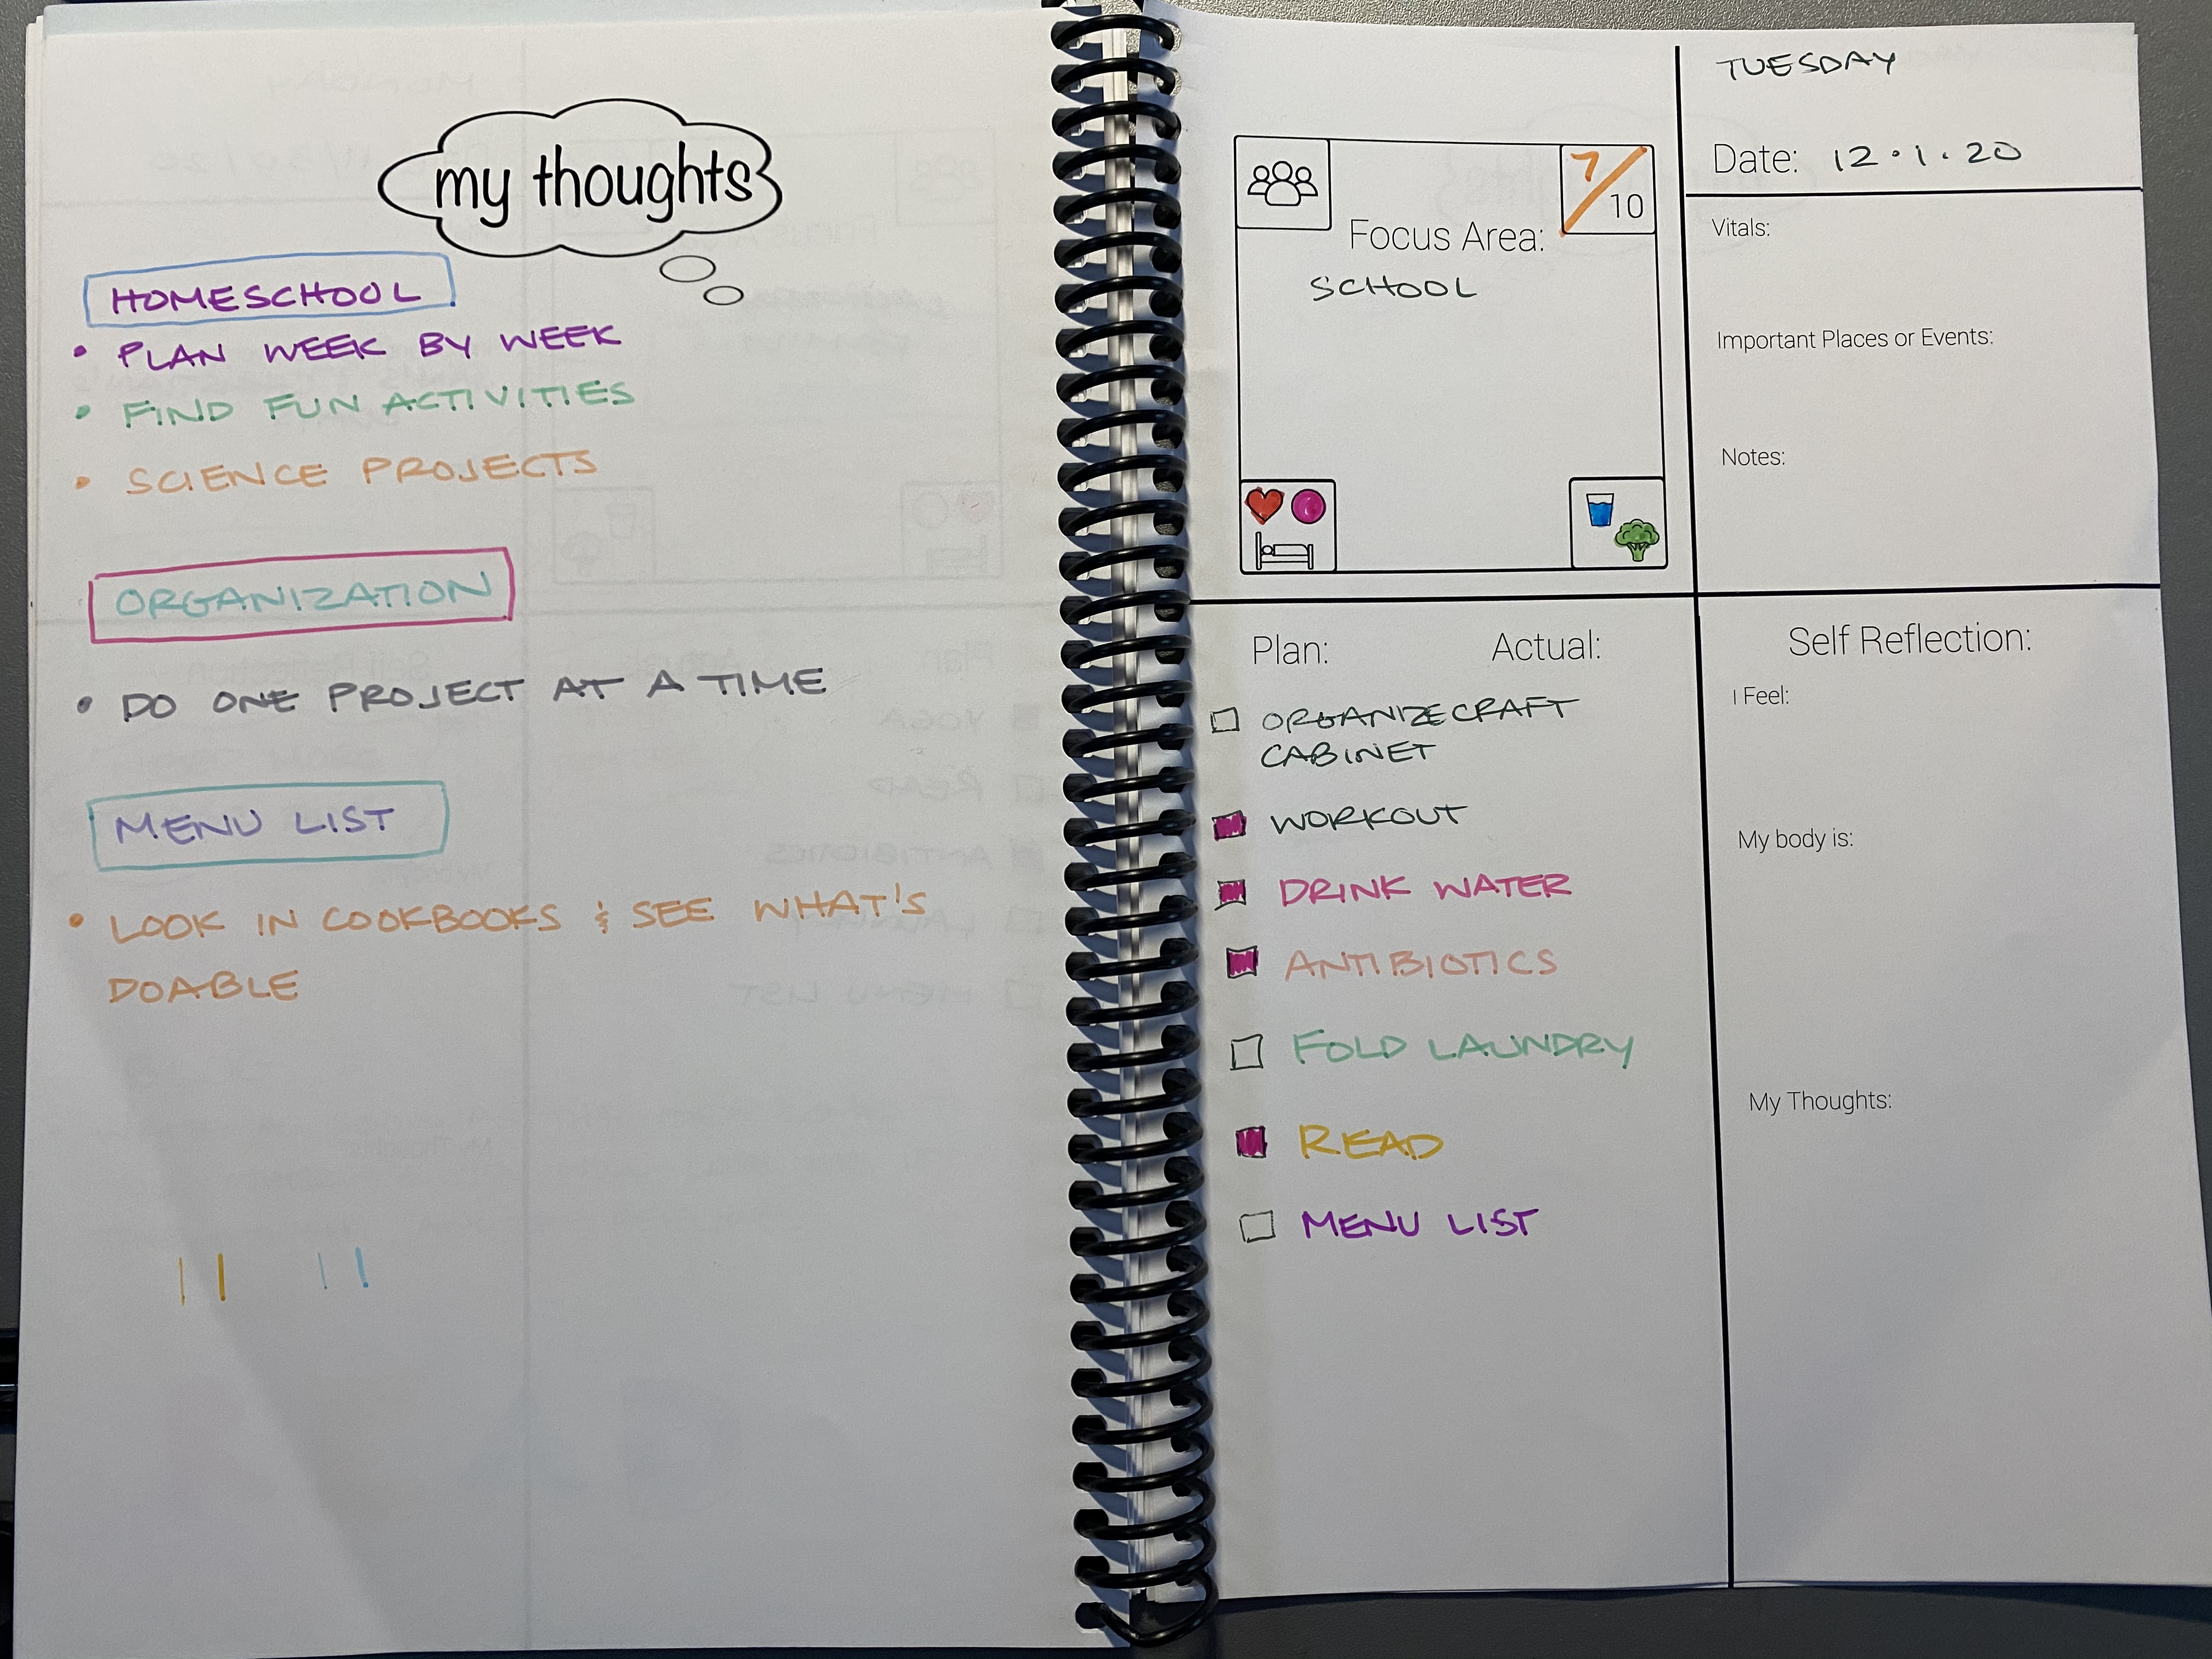 my thoughts
HOMESCHOOL
• PLAN WEEK BY WEEK
• FIND FUN ACTIVITIES
• SCIENCE PROJECTS
ORGANIZATION
• DO ONE PROJECT AT A TIME
MENU LIST
• LOOK IN COOKBOOKS & SEE WHAT'S
DOABLE
TUESDAY
Date: 12.1.20
7/10
Focus Area:
SCHOOL
Vitals:
Important Places or Events:
Notes:
Plan: Actual:
ORGANIZE CRAFT
CABINET
WORKOUT
DRINK WATER
ANTIBIOTICS
FOLD LAUNDRY
READ
MENU LIST
Self Reflection:
I Feel:
My body is:
My Thoughts: